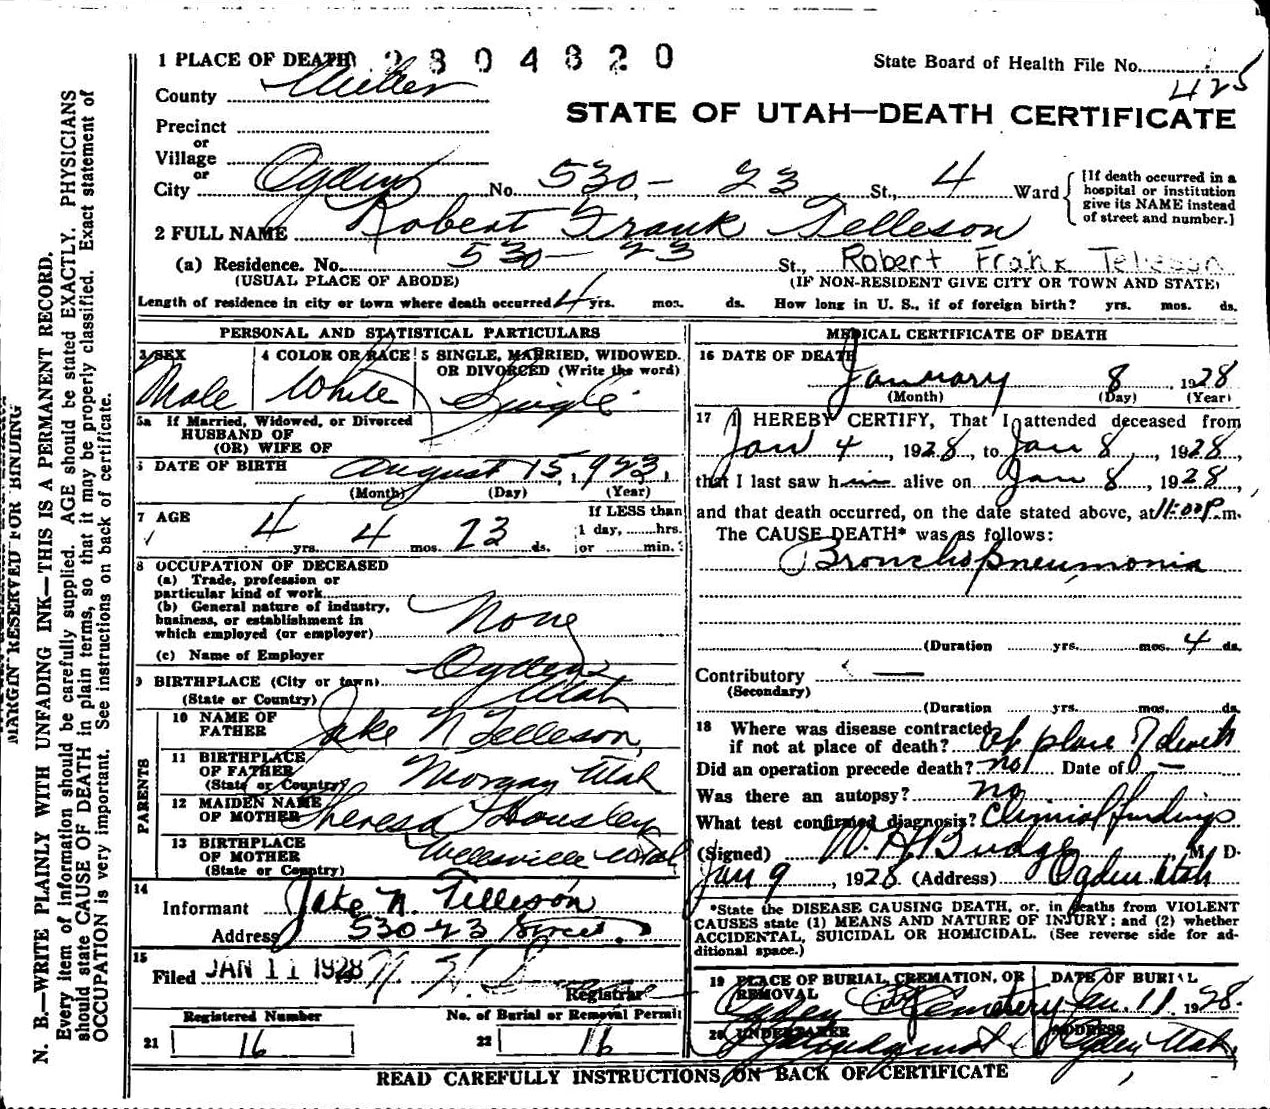 1 PLACE OF DEATH 2804820
State Board of Health File No.
425
County Weber
STATE OF UTAH—DEATH CERTIFICATE
Precinct
or
Village
or
City Ogden No. 530 - 23 St., 4 Ward
[If death occurred in a
hospital or institution
give its NAME instead
of street and number.]
2 FULL NAME Robert Frank Telleson
(a) Residence. No. 530 - 23 St., Robert Frank Telleson
(USUAL PLACE OF ABODE) (IF NON-RESIDENT GIVE CITY OR TOWN AND STATE)
Length of residence in city or town where death occurred 4 yrs. mos. ds. How long in U. S., if of foreign birth? yrs. mos. ds.
PERSONAL AND STATISTICAL PARTICULARS
3 SEX
Male
4 COLOR OR RACE
White
5 SINGLE, MARRIED, WIDOWED,
OR DIVORCED (Write the word)
Single
5a If Married, Widowed, or Divorced
HUSBAND OF
(OR) WIFE OF
6 DATE OF BIRTH August 15, 1923
(Month) (Day) (Year)
7 AGE
4 yrs. 4 mos. 23 ds.
If LESS than
1 day, hrs.
or min.
8 OCCUPATION OF DECEASED
(a) Trade, profession or
particular kind of work
(b) General nature of industry,
business, or establishment in
which employed (or employer) None
(c) Name of Employer
9 BIRTHPLACE (City or town) Ogden
(State or Country) Utah
PARENTS
10 NAME OF
FATHER Jake N Telleson
11 BIRTHPLACE
OF FATHER Morgan Utah
(State or Country)
12 MAIDEN NAME
OF MOTHER Theresa Housley
13 BIRTHPLACE
OF MOTHER Wellsville Utah
(State or Country)
14
Informant Jake N. Telleson
Address 530 23 Street
15
Filed JAN 11 1928
Registrar
Registered Number
21 16
No. of Burial or Removal Permit
22 16
MEDICAL CERTIFICATE OF DEATH
16 DATE OF DEATH
January 8 1928
(Month) (Day) (Year)
17 I HEREBY CERTIFY, That I attended deceased from
Jan 4, 1928, to Jan 8, 1928,
that I last saw him alive on Jan 8, 1928,
and that death occurred, on the date stated above, at 11:00 P. m.
The CAUSE DEATH* was as follows:
Bronchopneumonia
(Duration yrs. mos. 4 ds.
Contributory —
(Secondary)
(Duration yrs. mos. ds.
18 Where was disease contracted
if not at place of death? at place of death
Did an operation precede death? no Date of —
Was there an autopsy? no
What test confirmed diagnosis? Clinical findings
(Signed) W. H. Budge, M. D.
Jan 9, 1928 (Address) Ogden Utah
*State the DISEASE CAUSING DEATH, or, in deaths from VIOLENT
CAUSES state (1) MEANS AND NATURE OF INJURY; and (2) whether
ACCIDENTAL, SUICIDAL OR HOMICIDAL. (See reverse side for ad-
ditional space.)
19 PLACE OF BURIAL, CREMATION, OR
REMOVAL
Ogden City Cemetery
DATE OF BURIAL
Jan. 11 1928.
20 UNDERTAKER
Lindquist
ADDRESS
Ogden Utah
READ CAREFULLY INSTRUCTIONS ON BACK OF CERTIFICATE
MARGIN RESERVED FOR BINDING
N. B.—WRITE PLAINLY WITH UNFADING INK—THIS IS A PERMANENT RECORD.
Every item of information should be carefully supplied. AGE should be stated EXACTLY. PHYSICIANS
should state CAUSE OF DEATH in plain terms, so that it may be properly classified. Exact statement of
OCCUPATION is very important. See instructions on back of certificate.